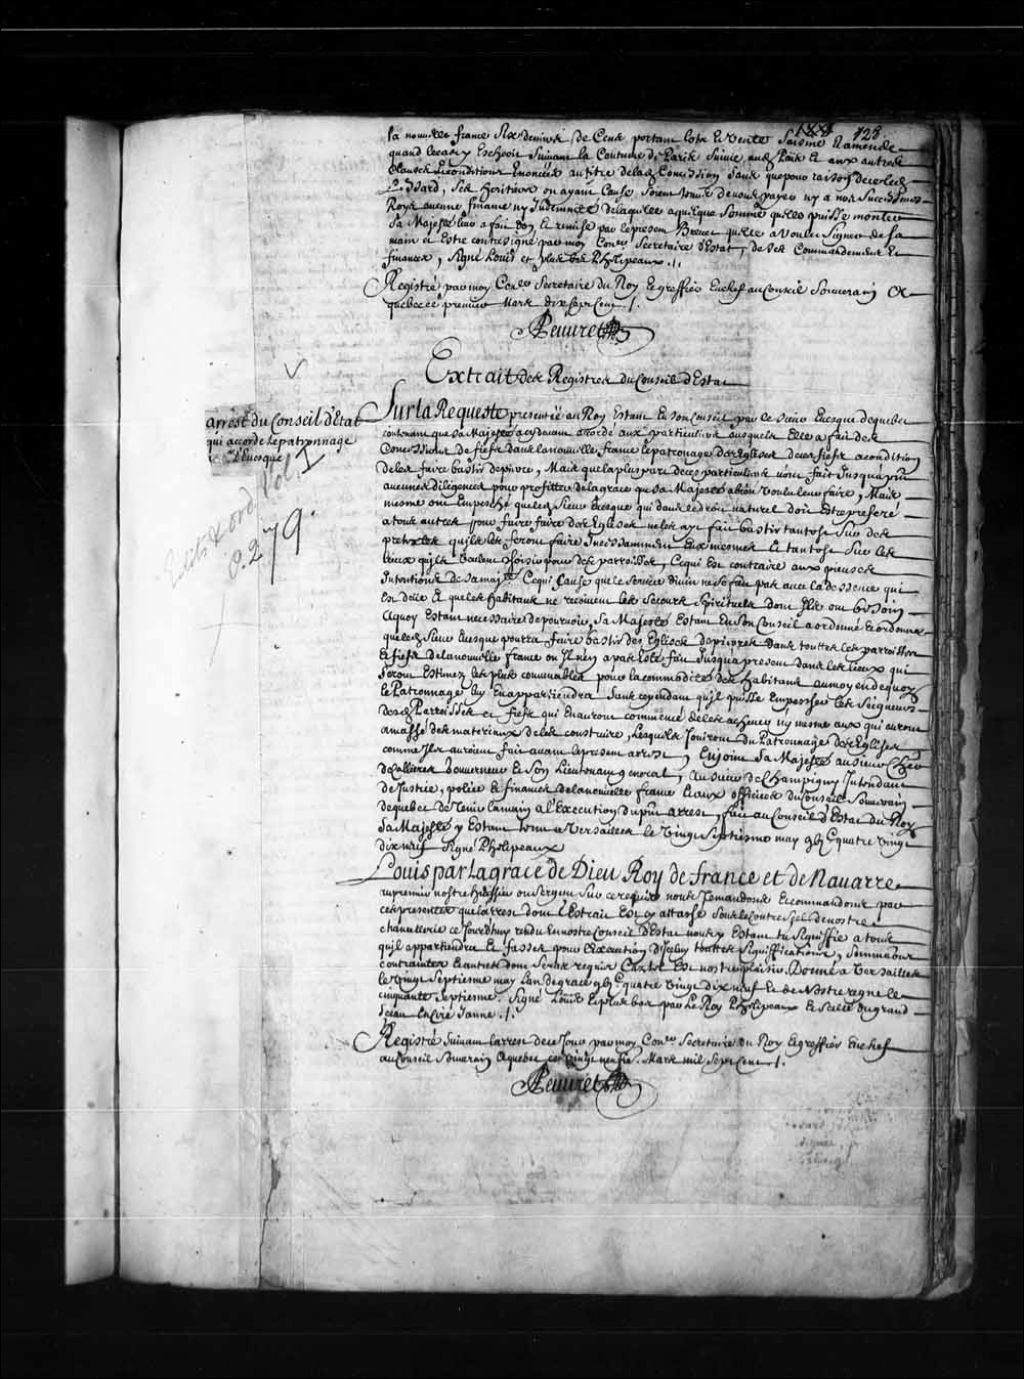 188 123
la nouvelle france six deniers de Cens portant lots et vente saisine et amende
quand le cas y Eschoit Suivant la Coutume de Paris Suivie aud Païs et aux autres
Clauses et conditions Enoncées au titre de lad Concession sans que pour raison de ce led
ses heritiers ou ayant Cause soient tenus de nous payer ny a nos Successeurs
Roys aucune finance ny Indemnité de laquelle a quelque somme quelle puisse monter
sa Majesté leur a fait don et remise par le present Brevet quelle a voulu signer de sa
main et Estre contresigné par moy Conser Secretaire d'Estat, de ses Commandemens et
finances, signé Louis et plus bas Phelipeaux ./.
Registré par moy Conser Secretaire du Roy et greffier En chef au Conseil Souverain a
quebec ce premier Mars dix sept Cent ./.
Peuvret
Extrait des Registres du Conseil d'Estat
arrest du Conseil d'Etat
qui accorde le patronnage
a l'Evesque
Edits & ord. Vol I
p. 279.
Sur la Requeste presentée au Roy Estant En son Conseil par le sieur Evesque de quebec
contenant que sa Majesté a cy devant accordé aux particuliers ausquels Elle a fait des
Concessions de fiefs dans la nouvelle france le patronage des Eglises de ces fiefs a condition
de les faire bastir de pierre, Mais que la pluspart de ces particuliers n'ont fait Jusqu'a pnt
aucunes diligences pour profiter de la grace que sa Majesté a bien voulu leur faire, Mais
mesme ont Empesché que led Sieur Evesque qui dans le droit naturel doit estre preferé
a tous autres pour faire faire des Eglises ne les ayt fait bastir tantost sur des
pretextes qu'ils les feront faire Incessamment Eux mesmes et tantost sur les
lieux qu'ils veulent choisir pour des parroisses, Ce qui Est contraire aux pieuses
Intentions de sa majté Ce qui Cause que le service divin ne se fait pas avec la dessence qui
Est deüe et que les habitans ne recoivent les secours spirituels dont Ils ont besoin
A quoy Estant necessaire de pourvoir, sa Majesté Estant En son Conseil a ordonné et ordonne
que led Sieur Evesque pourra faire bastir des Eglises de pierres dans touttes les parroisses
et fiefs de la nouvelle france ou Il n'en a pas Esté fait Jusqu'a present dans les lieux qui
seront Estimez les plus convenables pour la commodité des habitans au moyen de quoy
le Patronnage luy En appartiendra sans cependant qu'il puisse Empescher les Seigneurs
desd Parroisses et fiefs qui En auront commencé de les achever ny mesme ceux qui auront
amassé des materiaux de les construire, lesquels Jouiront du Patronnage des Eglises
comme Ils auroient fait avant le present arrest, Enjoint sa Majesté au sieur Cher
de Callieres Gouverneur et Son Lieutenant general, au sieur de Champigny Intendant
de Justice, police et finances de la nouvelle france et aux officiers du Conseil Souverain
de quebec de tenir la main a l'Execution du pnt arrest, fait au Conseil d'Estat du Roy
sa Majesté y Estant tenu a Versailles le Vingt Septiesme may gbj C quatre vingt
dix neuf signé Phelipeaux
Louis par la grace de Dieu Roy de france et de Navarre
au premier nostre huissier ou sergent sur ce requis nous te mandons et commandons par
ces presentes que l'arrest dont l'Extrait Est cy attaché sous le contre scel de nostre
chancellerie ce Jourd'huy rendu En nostre Conseil d'Estat nous y Estant tu signiffie a tous
qu'il appartiendra et fasse pour l'Execution d'Iceluy touttes significations, sommations
contraintes et autres dont seras requis Car tel Est nostre plaisir Donné a Versailles
le vingt septiesme may l'an de grace gbj C quatre vingt dix neuf et de Nostre regne le
cinquante septiesme. signé Louis et plus bas par le Roy Phelipeaux et scellé du grand
Sceau En Cire Jaune ./.
Registré suivant l'arrest de ce Jour par moy Conser Secretaire du Roy et greffier En chef
au Conseil Souverain a quebec ce Vingt neufie. Mars mil sept Cent ./.
Peuvret